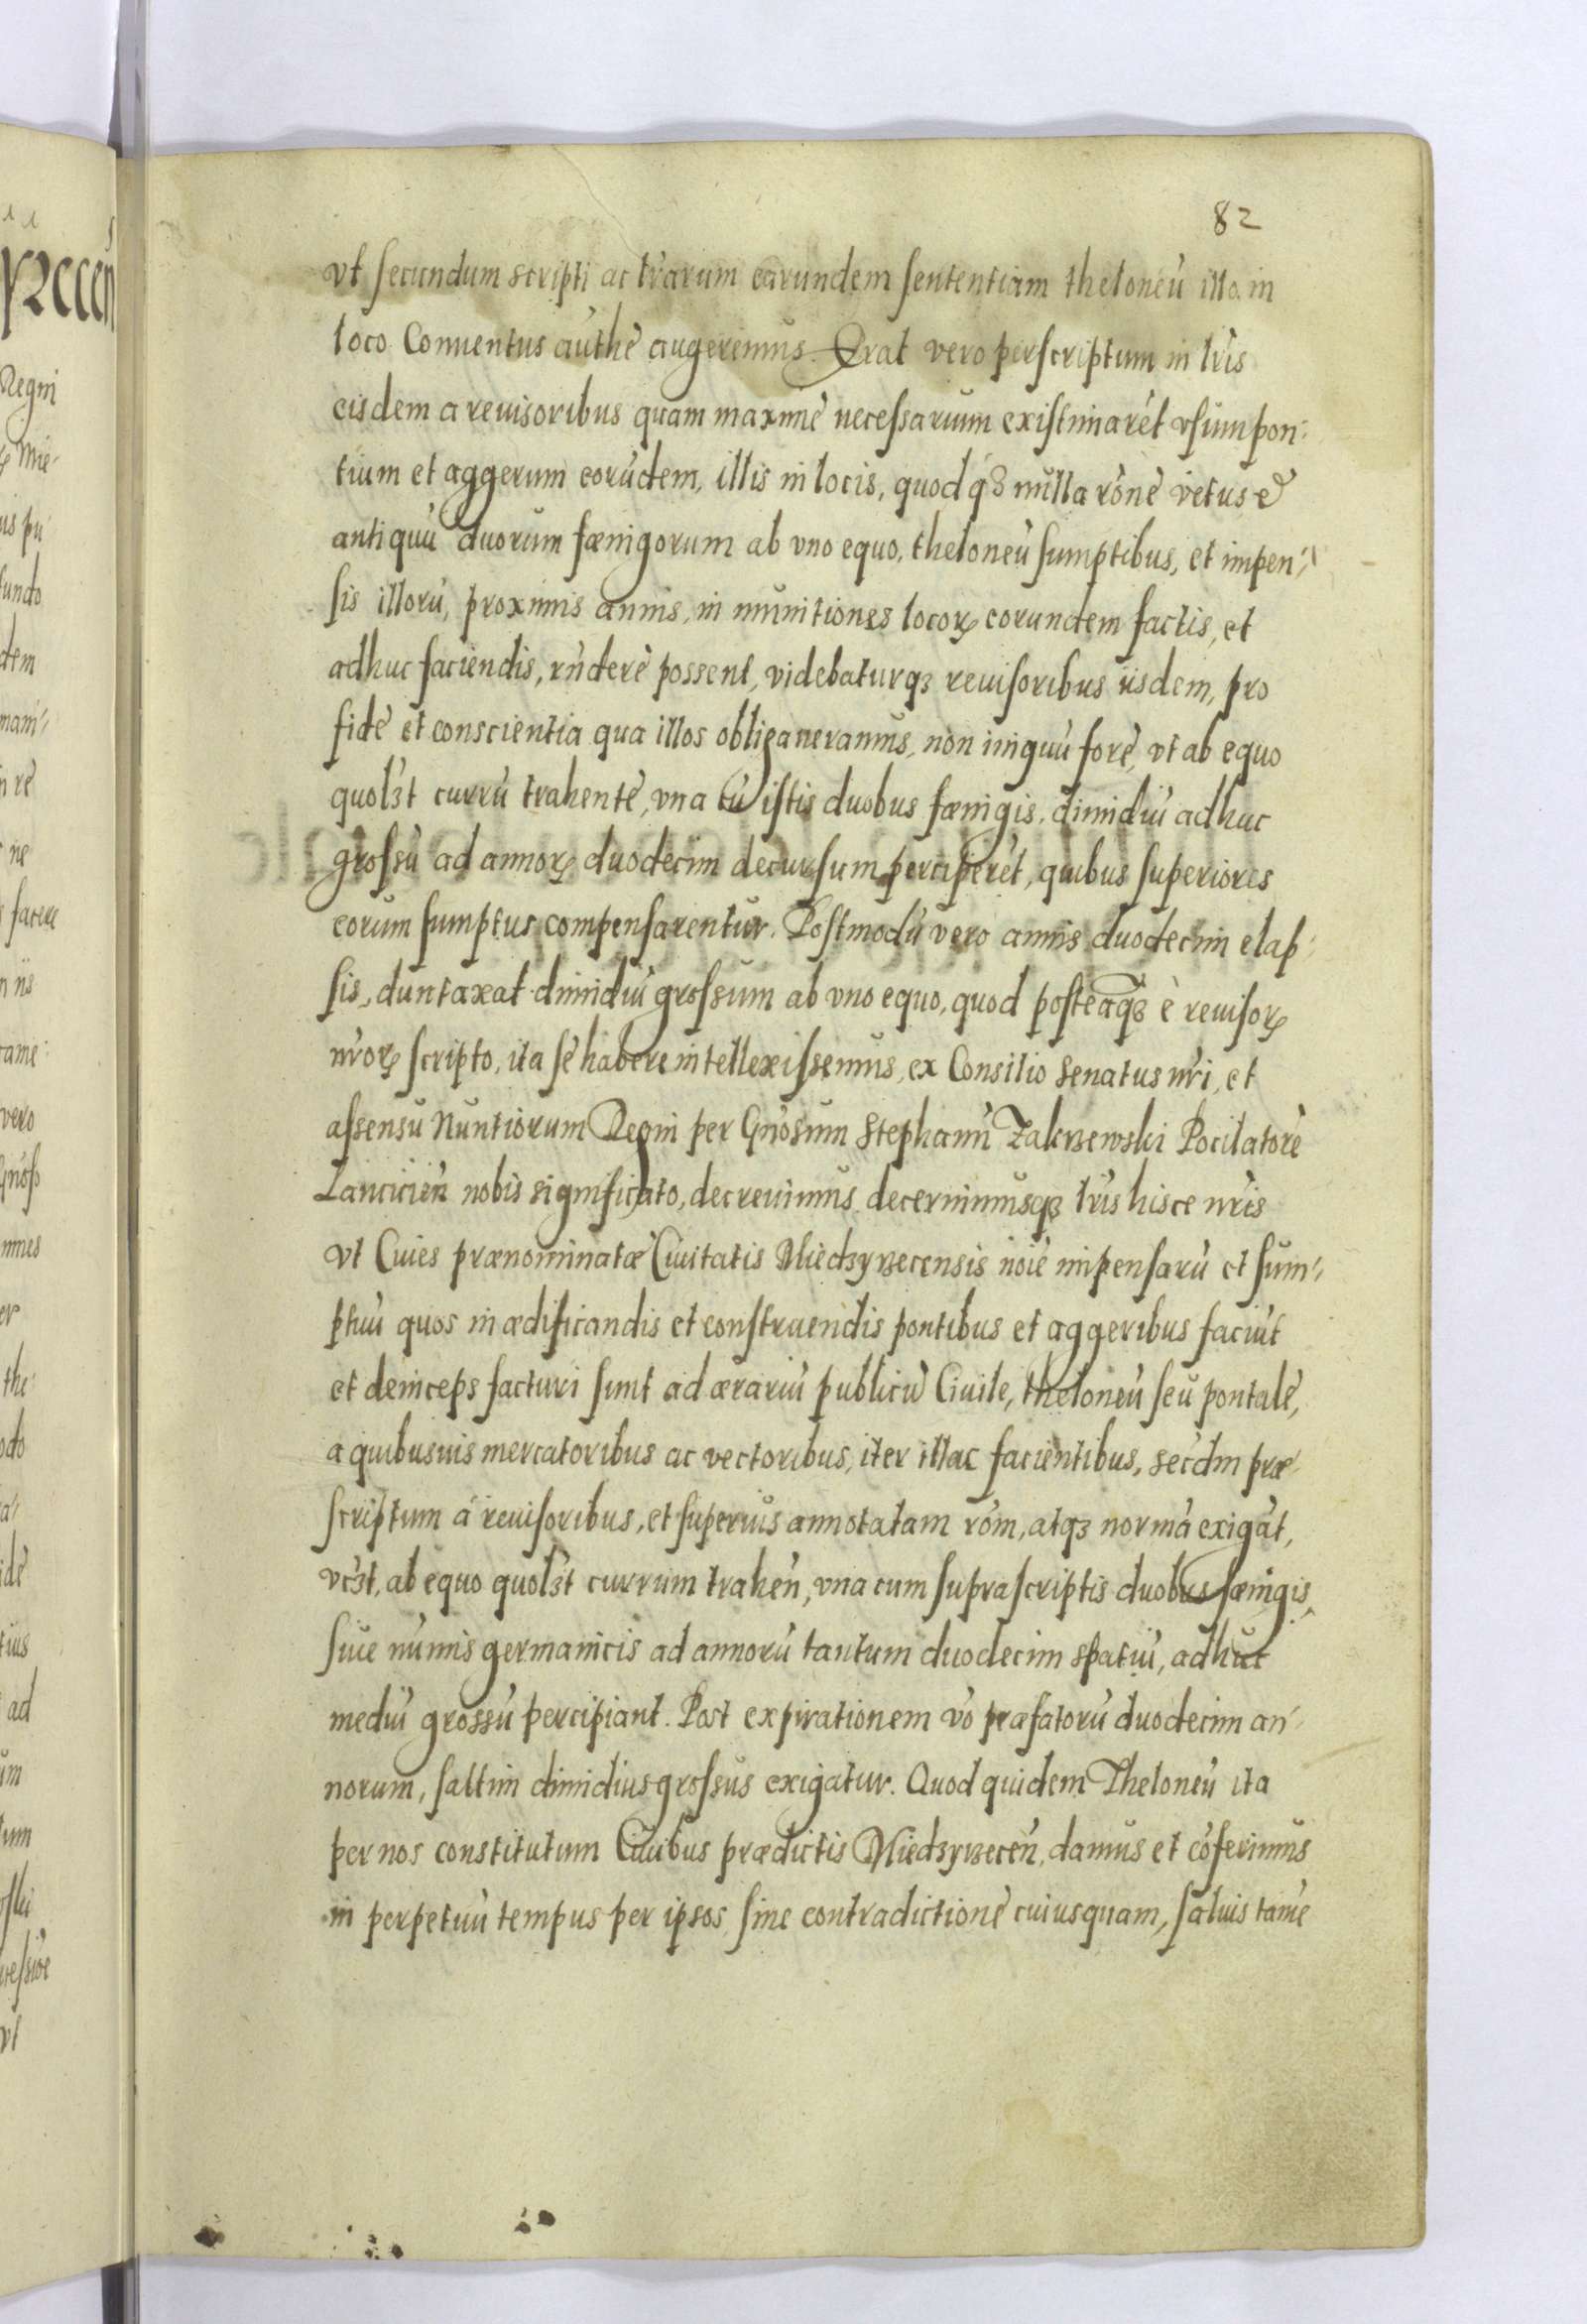 82
vt secundum scripti ac lr̃arum earundem sententiam theloneũ illo in
loco Conuentus authẽ augeremus. Erat vero perscriptum in lr̃is
eisdem a reuisoribus quam maximẽ necessarium existimarẽt vsum pon:
tium et aggerum eorũdem, illis in locis, quod nulla rõne vetus et
antiquũ duorum fænigorum ab vno equo, theloneũ sumptibus, et impen-
sis illorũ, proximis annis, in munitiones locoꝝ eorundem factis, et
adhuc faciendis, rñdere possent, videbaturqꝫ reuisoribus iisdem, pro
fide et conscientia qua illos obligaueramus, non iniquũ fore, vt ab equo
quolꝫt currũ trahente, vna cũ istis duobus fænigis, dimidiũ adhuc
grossũ ad annoꝝ duodecim decursum perciperẽt, quibus superiores
eorum sumptus compensarentur. Postmodũ vero annis duodecim elap:
sis, duntaxat dimidiũ grossum ab vno equo, quod posteaqꝫ è reuisoꝝ
nr̃oꝝ scripto, ita se habere intellexissemus, ex Consilio Senatus nr̃i, et
assensu Nuntiorum Regni per Gñosum Stephanũ Zakrzewski Pocilatorẽ
Lanciciẽn nobis significato, decreuimus decernimusqꝫ lr̃is hisce nr̃is
Vt Ciues prænominatæ Ciuitatis Miedzyrzecensis noĩe impensarũ et sum-
ptuũ quos in ædificandis et construendis pontibus et aggeribus faciũt
et deinceps facturi sunt ad ærariũ publicũ Ciuile, theloneũ seu pontale,
a quibusuis mercatoribus ac vectoribus, iter illac facientibus, secdm præ-
scriptum á reuisoribus, et superius annotatam rõm, atqꝫ normã exigãt,
vcꝫt, ab equo quolꝫt currum trahẽn, vna cum suprascriptis duobus fænigis,
siue numis germanicis ad annorũ tantum duodecim spatiũ, adhuc
mediũ grossũ percipiant. Post expirationem võ præfatorũ duodecim an-
norum, saltim dimidius grossus exigatur. Quod quidem Theloneũ ita
per nos constitutum Ciuibus prædictis Miedzyrzecẽn, damus et cõferimus
in perpetuũ tempus per ipsos sine contradictione cuiusquam, saluis tamẽ